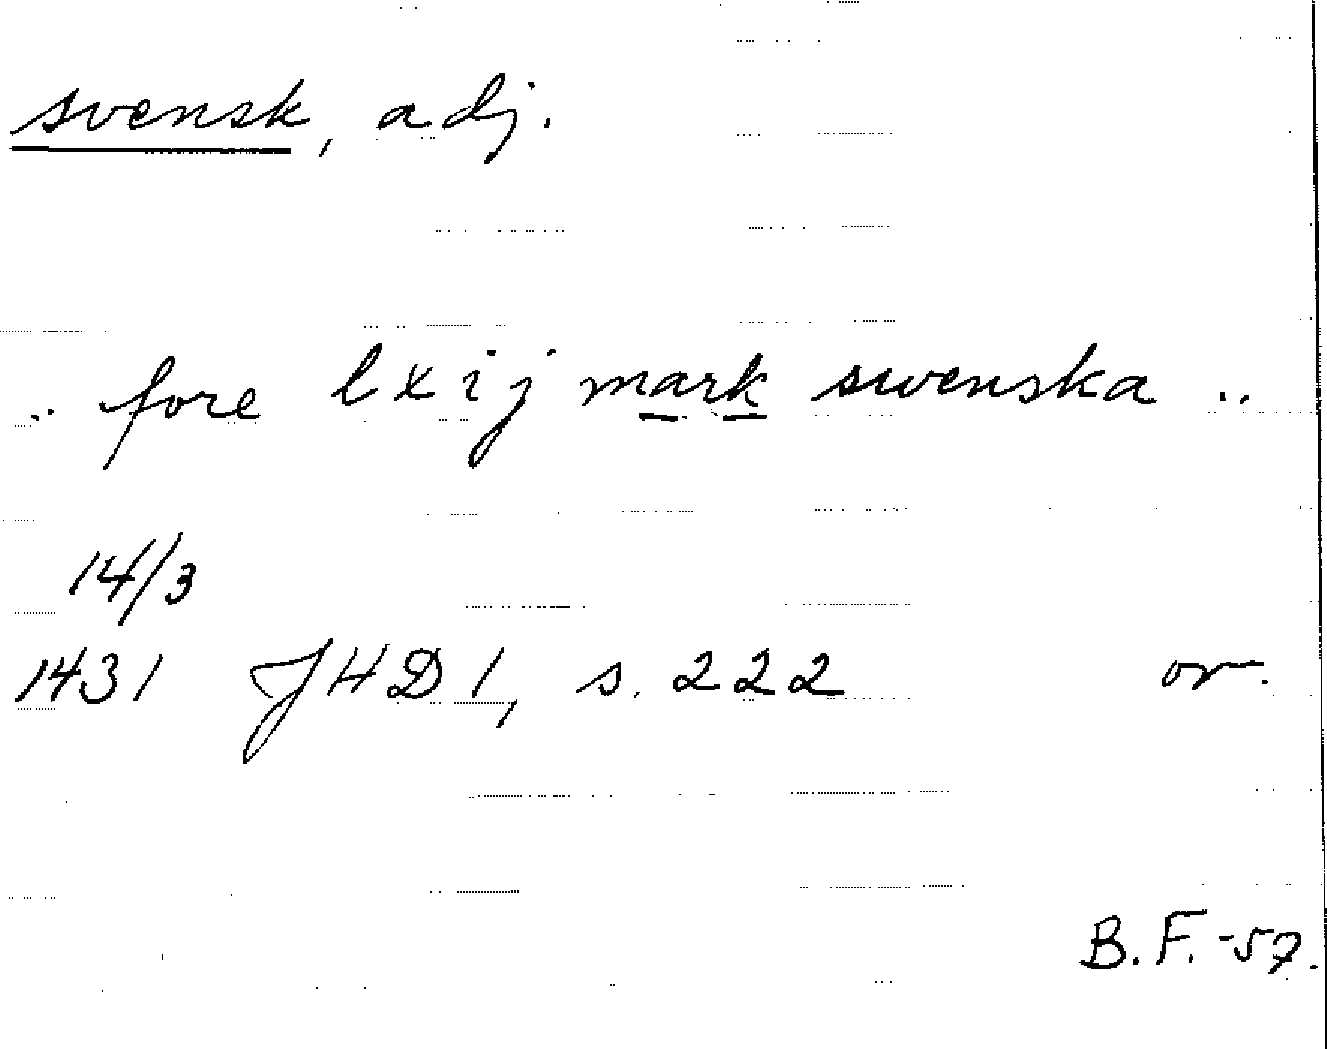 svensk, adj.
.. fore lxij mark swenska ..
14/3
1431 JHD 1, s. 222 or.
B.F. -57.